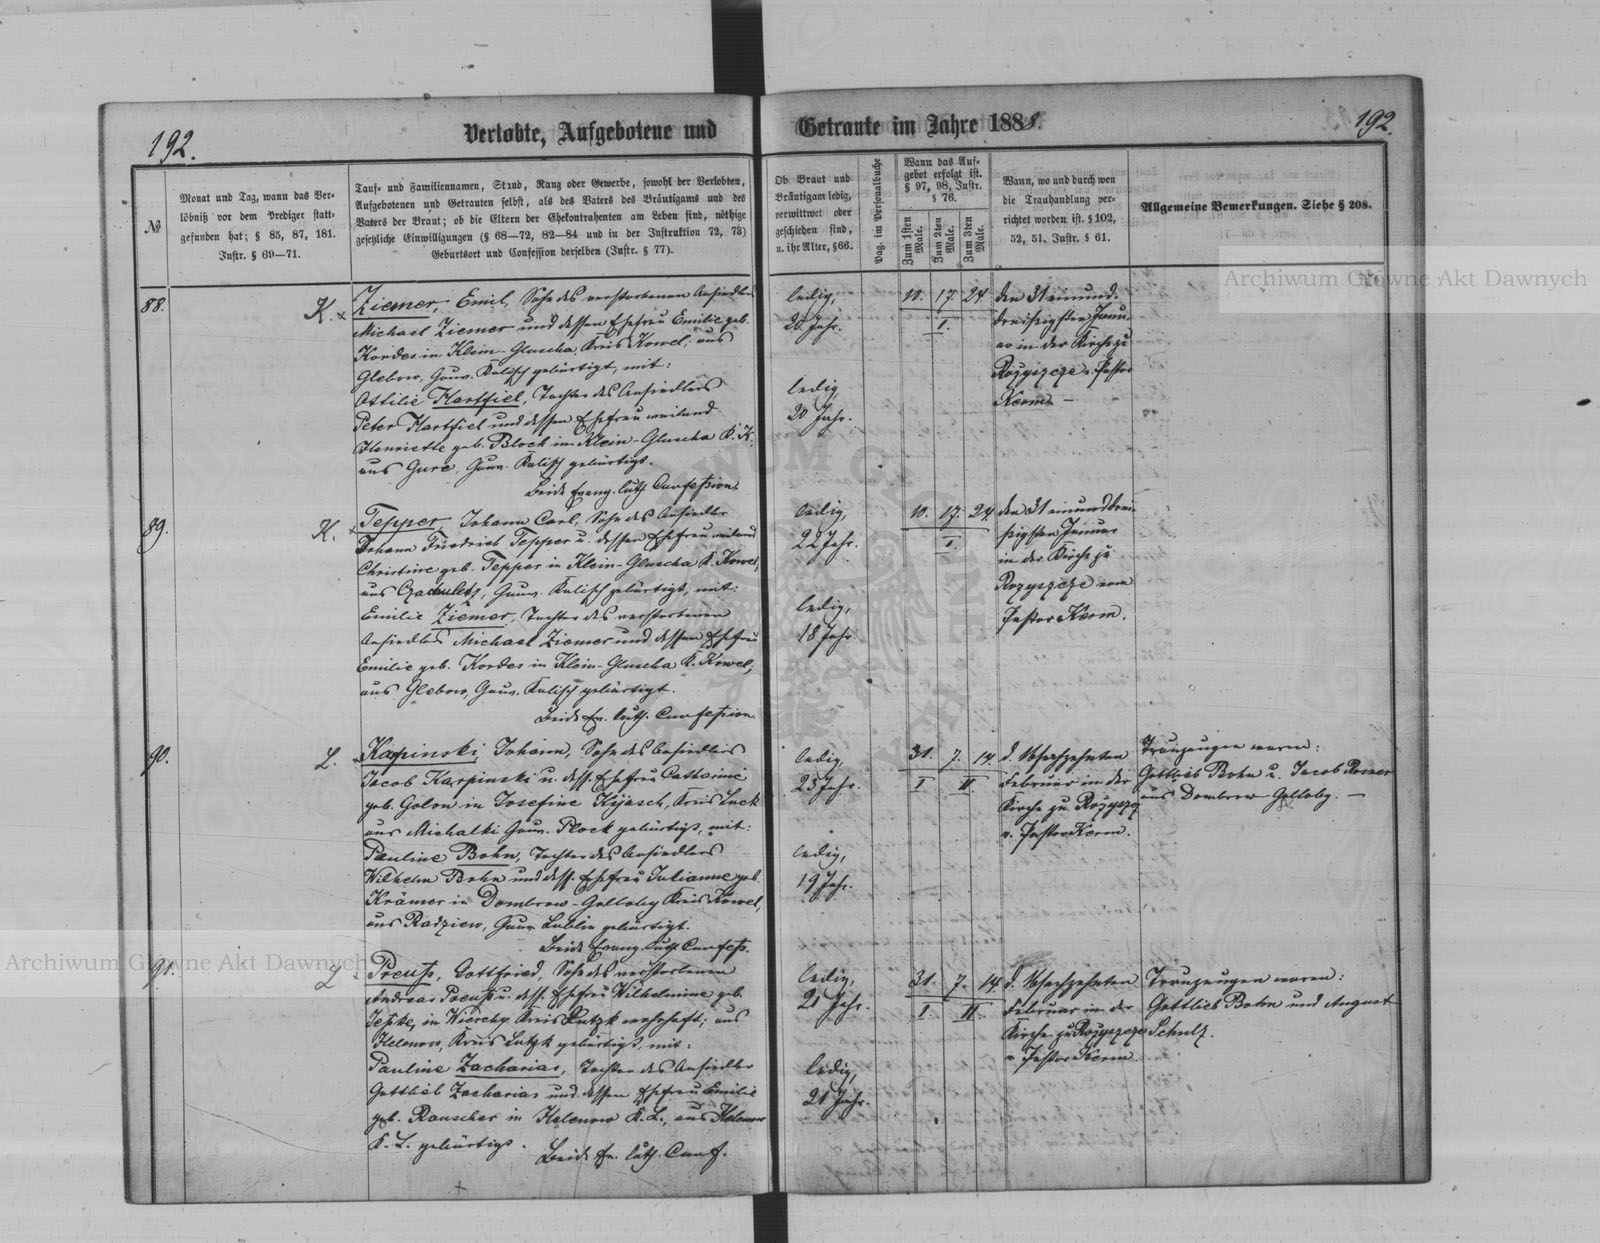 192.
Verlobte, Aufgebotene und
Getraute im Jahre 1888.
192.
№
Monat und Tag, wann das Ver-
löbniß vor dem Prediger statt-
gefunden hat; § 85, 87, 181.
Instr. § 69—71.
Tauf- und Familiennamen, Stand, Rang oder Gewerbe, sowohl der Verlobten,
Aufgebotenen und Getrauten selbst, als des Vaters des Bräutigams und des
Vaters der Braut; ob die Eltern der Ehekontrahenten am Leben sind, nöthige
gesetzliche Einwilligungen (§ 68—72, 82—84 und in der Instruktion 72, 73)
Geburtsort und Confession derselben (Instr. § 77).
Ob Braut und
Bräutigam ledig,
verwittwet oder
geschieden sind,
u. ihr Alter, § 66.
Pag. im Personalbuche
Wann das Auf-
gebot erfolgt ist.
§ 97, 98, Instr.
§ 76.
Zum 1sten Male.
Zum 2ten Male.
Zum 3ten Male.
Wann, wo und durch wen
die Trauhandlung ver-
richtet worden ist. § 102,
52, 51. Instr. § 61.
Allgemeine Bemerkungen. Siehe § 208.
88.
K.
Ziemer, Emil, Sohn des verstorbenen Ansiedlers
Michael Ziemer und dessen Ehefrau Emilie geb.
Kordes in Klein-Gluscha, Kreis Kowel, aus
Glebow, Gouv. Kalisch gebürtigt, mit:
Ottilie Hartfiel, Tochter des Ansiedlers
Peter Hartfiel und dessen Ehefrau weiland
Henriette geb. Block in Klein-Gluscha K. K.
aus Gure, Gouv. Kalisch gebürtigt.
Beide Evang. luth. Confession.
ledig,
Jahr.
ledig,
20 Jahr.
10. 17. 24.
I.
den 31 einund-
dreißigsten Janu-
ar in der Kirche zu
Rozyszcze v. Pastor
Kerm. —
89.
K.
Tepper, Johann Carl, Sohn des Ansiedler
Johann Friedrich Tepper u. dessen Ehefrau weiland
Christine geb. Tepper in Klein-Gluscha K. Kowel,
aus, Gouv. Kalisch gebürtigt, mit:
Emilie Ziemer, Tochter des verstorbenen
Ansiedlers Michael Ziemer und dessen Ehefrau
Emilie geb. Kordes in Klein-Gluscha K. Kowel,
aus Glebow, Gouv. Kalisch gebürtigt.
Beide Ev. luth. Confession.
ledig,
22 Jahr.
ledig,
18 Jahr.
10. 17. 24.
I.
den 31 einunddrei-
ßigsten Januar
in der Kirche zu
Rozyszcze vom
Pastor Kerm.
90.
L.
Karpinski, Johann, Sohn des Ansiedlers
Jacob Karpinski u. dess. Ehefrau Catharine
geb. Golon in Josefine Kijasch, Kreis Luck
aus Michalki Gouv. Plock gebürtigt, mit:
Pauline Bohn, Tochter des Ansiedlers
Wilhelm Bohn und dess. Ehefrau Julianne geb.
Krämer in Dombrow-Golloby Kreis Kowel,
aus Radziew, Gouv. Lublin gebürtigt.
Beide Evang. luth. Confess.
ledig,
23 Jahr.
ledig,
19 Jahr.
31. 7. 14.
I II
d. 18 achzehnten
Februar in der
Kirche zu Rozyszcz
v. Pastor Kerm.
Trauzeugen waren:
Gottlieb Bohn u. Jacob
aus Dombrow Golloby. —
91.
L.
Preuß, Gottfried, Sohn des verstorbenen
Andreas Preuß u. dess. Ehefrau Wilhelmine geb.
Jeske, in Wierchy Kreis Lutzk wohnhaft; aus
Helenow, Kreis Lutzk gebürtigt, mit:
Pauline Zacharias, Tochter des Ansiedler
Gottlieb Zacharias und dessen Ehefrau Emilie
geb. Rauscher in Helenow K. L., aus Helenow
K. L. gebürtigt.
Beide Ev. luth. Conf.
ledig,
21 Jahr.
ledig,
21 Jahr.
31. 7. 14.
I. II.
d. 18 achzehnten
Februar in der
Kirche zu Rozyszcze
v. Pastor Kerm.
Trauzeugen waren:
Gottlieb Bohn und August
Schulz.
Archiwum Główne Akt Dawnych
Archiwum Główne Akt Dawnych